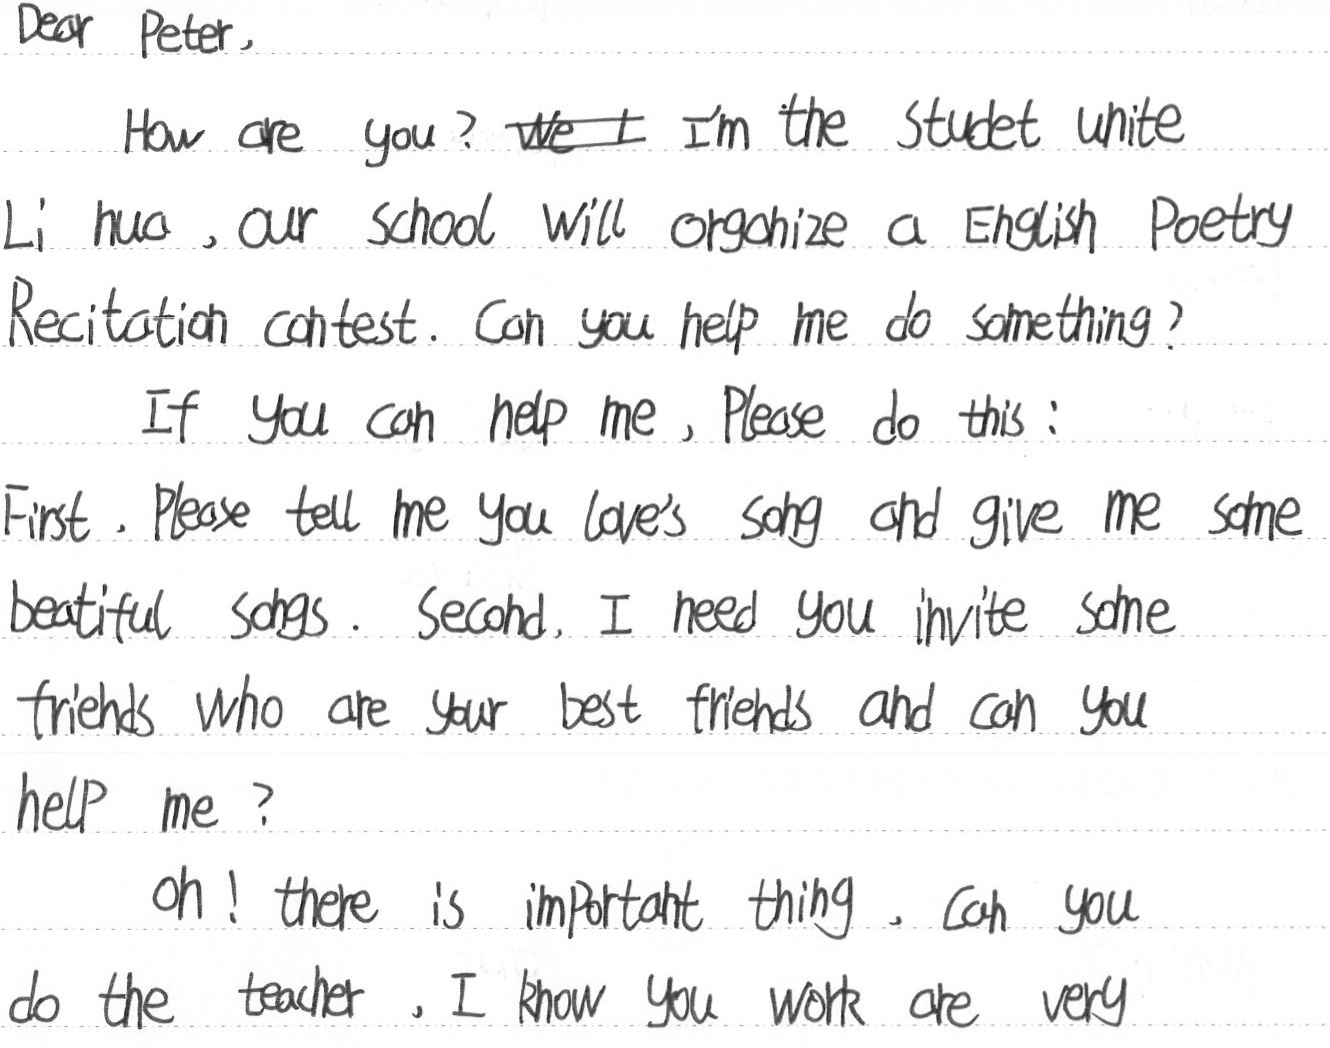 Dear Peter,
How are you? I'm the studet unite
Li hua, our school will organize a English Poetry
Recitation contest. Can you help me do something?
If you can help me, Please do this:
First. Please tell me you love's song and give me some
beatiful songs. Second, I need you invite some
friends who are your best friends and can you
help me?
oh! there is important thing. Can you
do the teacher, I know you work are very